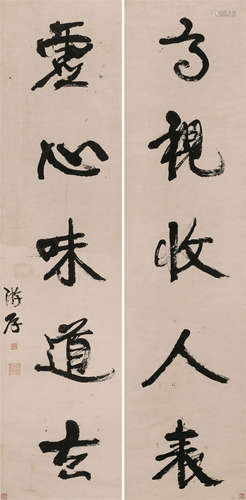 高視收人表
虛心味道玄
游存